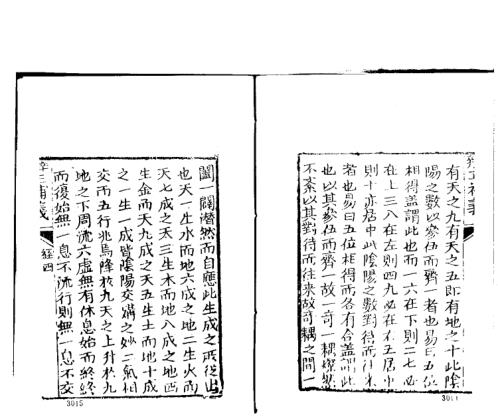 有天之九有天之五即有地之十此陰
陽之數以參伍而齊一者也易曰五位
相得蓋謂此也而一六在下則二七必
在上三八在左則四九必在右五居中
則十亦居中此陰陽之數對待而往來
者也易曰五位相得而各有合蓋謂此
也以其參伍而齊一故一奇一耦燦然
不紊以其對待而往來故奇耦之間一
闔一闢潛然而自應此生成之所從出
也天一生水而地六成之地二生火而
天七成之天三生木而地八成之地四
生金而天九成之天五生土而地十成
之一生一成皆陰陽交媾之妙二氣相
交而五行兆焉降於九天之上升於九
地之下周流六虛無有休息始而終終
而復始無一息不流行則無一息不交
經四
3015
3011